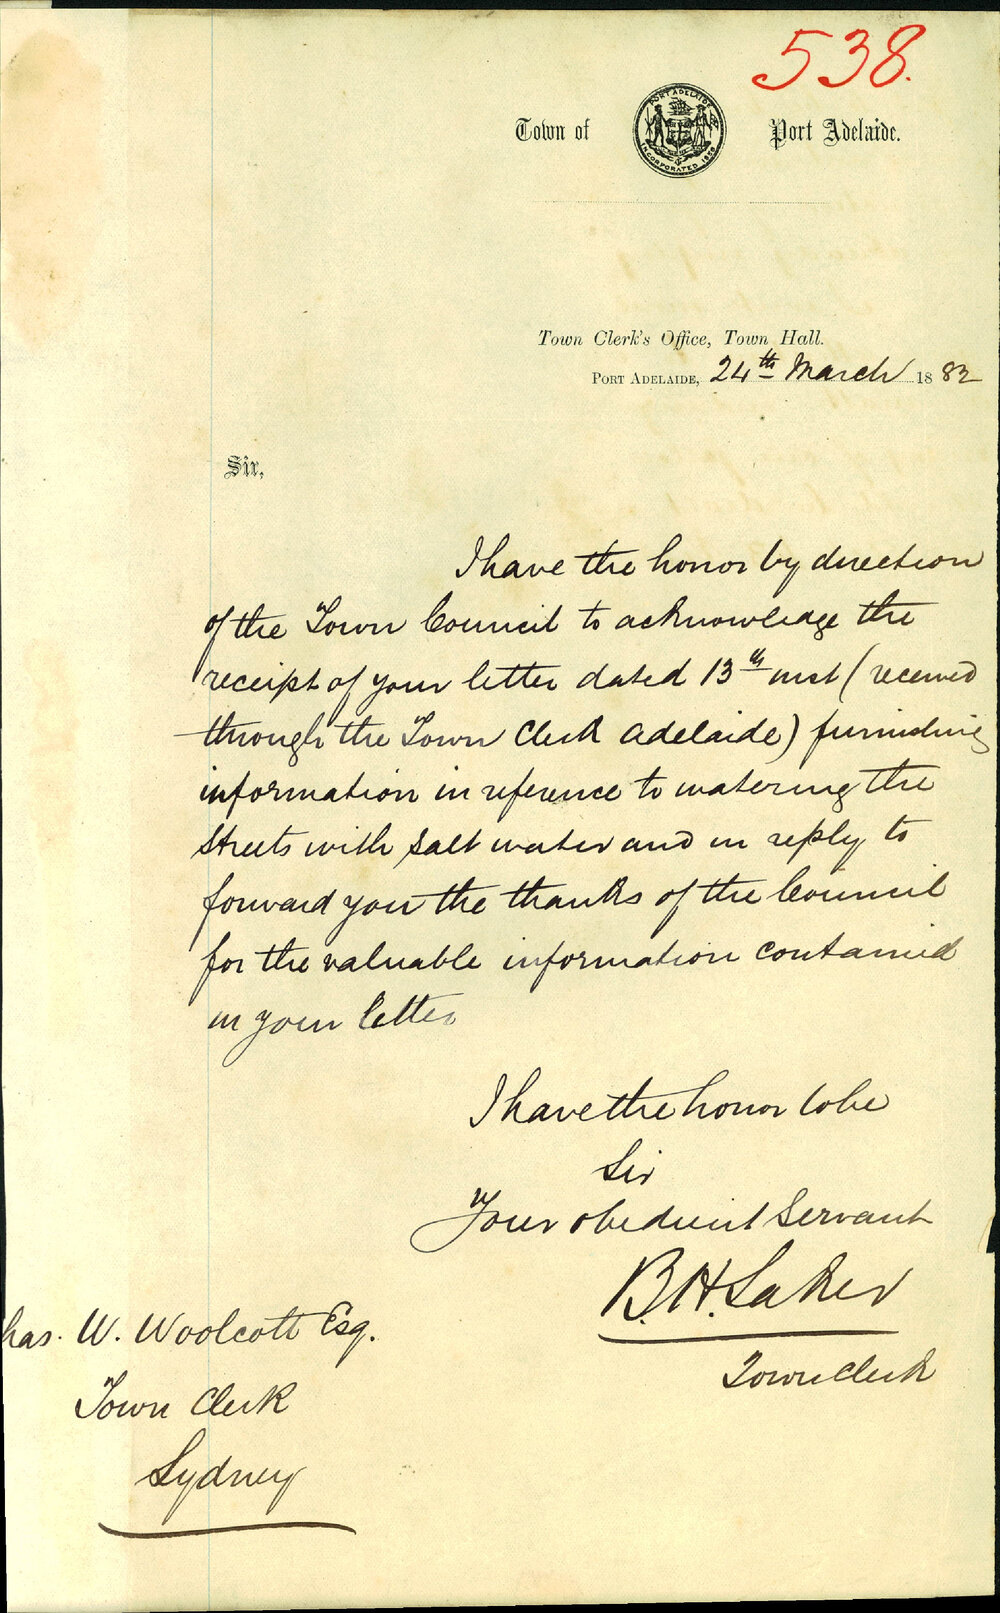 538.
Town of Port Adelaide.
PORT ADELAIDE
INCORPORATED 1856
Town Clerk's Office, Town Hall.
PORT ADELAIDE, 24th March 1882
Sir,
I have the honor by direction
of the Town Council to acknowledge the
receipt of your letter dated 13th inst (received
through the Town Clerk Adelaide) furnishing
information in reference to watering the
Streets with Salt water and in reply to
forward you the thanks of the Council
for the valuable information contained
in your letter
I have the honor to be
Sir
Your obedient Servant
B. H. Laker
Town Clerk
has. W. Woolcott Esq.
Town Clerk
Sydney